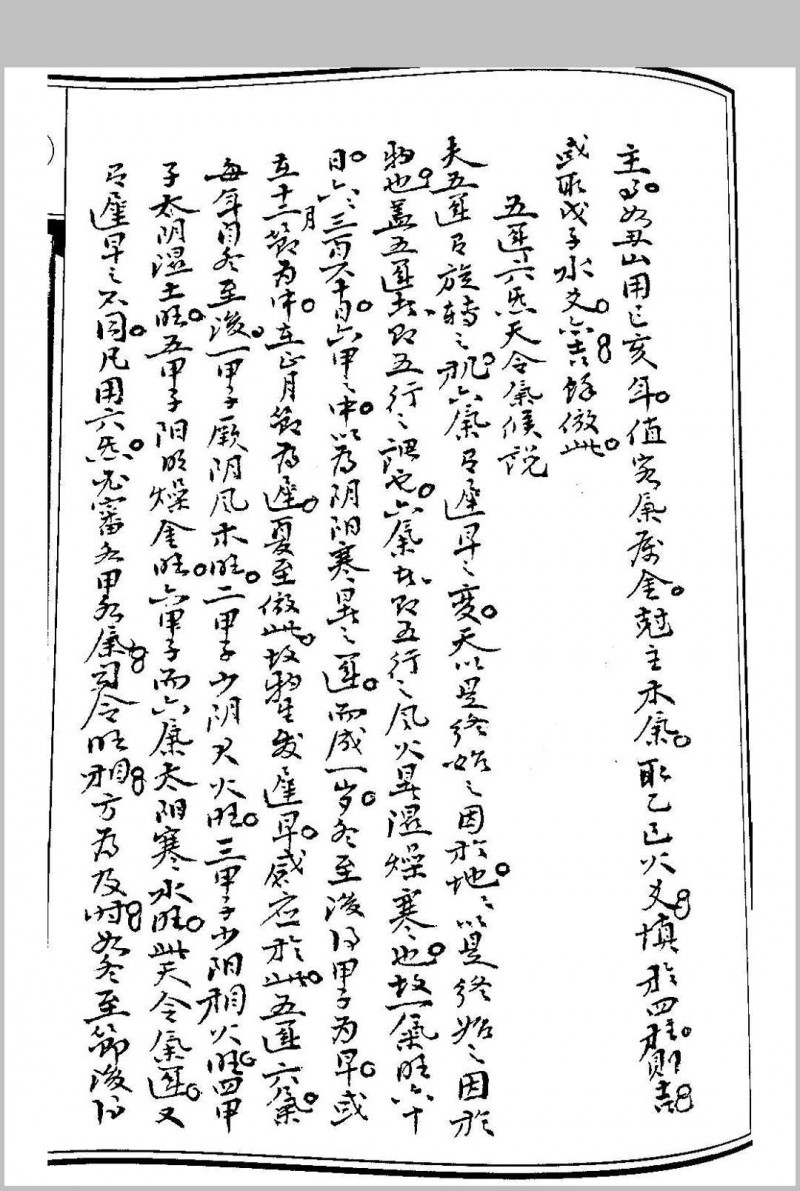 主得如丑山用己亥年値客氣屬金尅主木氣取乙巳火爻填於四柱則吉
或取戊子水爻亦吉餘倣此
五運六炁天令氣候說
天五運有旋轉之机六氣有遲早之變天以是終始之因於地地以是終始之因於
物也蓋五運者即五行之謂也六氣者即五行之風火暑濕燥寒也故一氣旺六十
日六六三百六十日六甲之中以為阴阳寒暑之運而成一岁冬至後得甲子為早或
在十二月節為中在正月節為遲夏至倣此故物生发遲早感应於此五運六氣
每年自冬至後一甲子厥阴风木旺二甲子少阴君火旺三甲子少阳相火旺四甲
子太阴濕土旺五甲子阳明燥金旺六甲子而六氣太阳寒水旺此天令氣運又
有遲早之不同凡用六炁必審各甲子氣司令旺相方為及時如冬至節後得